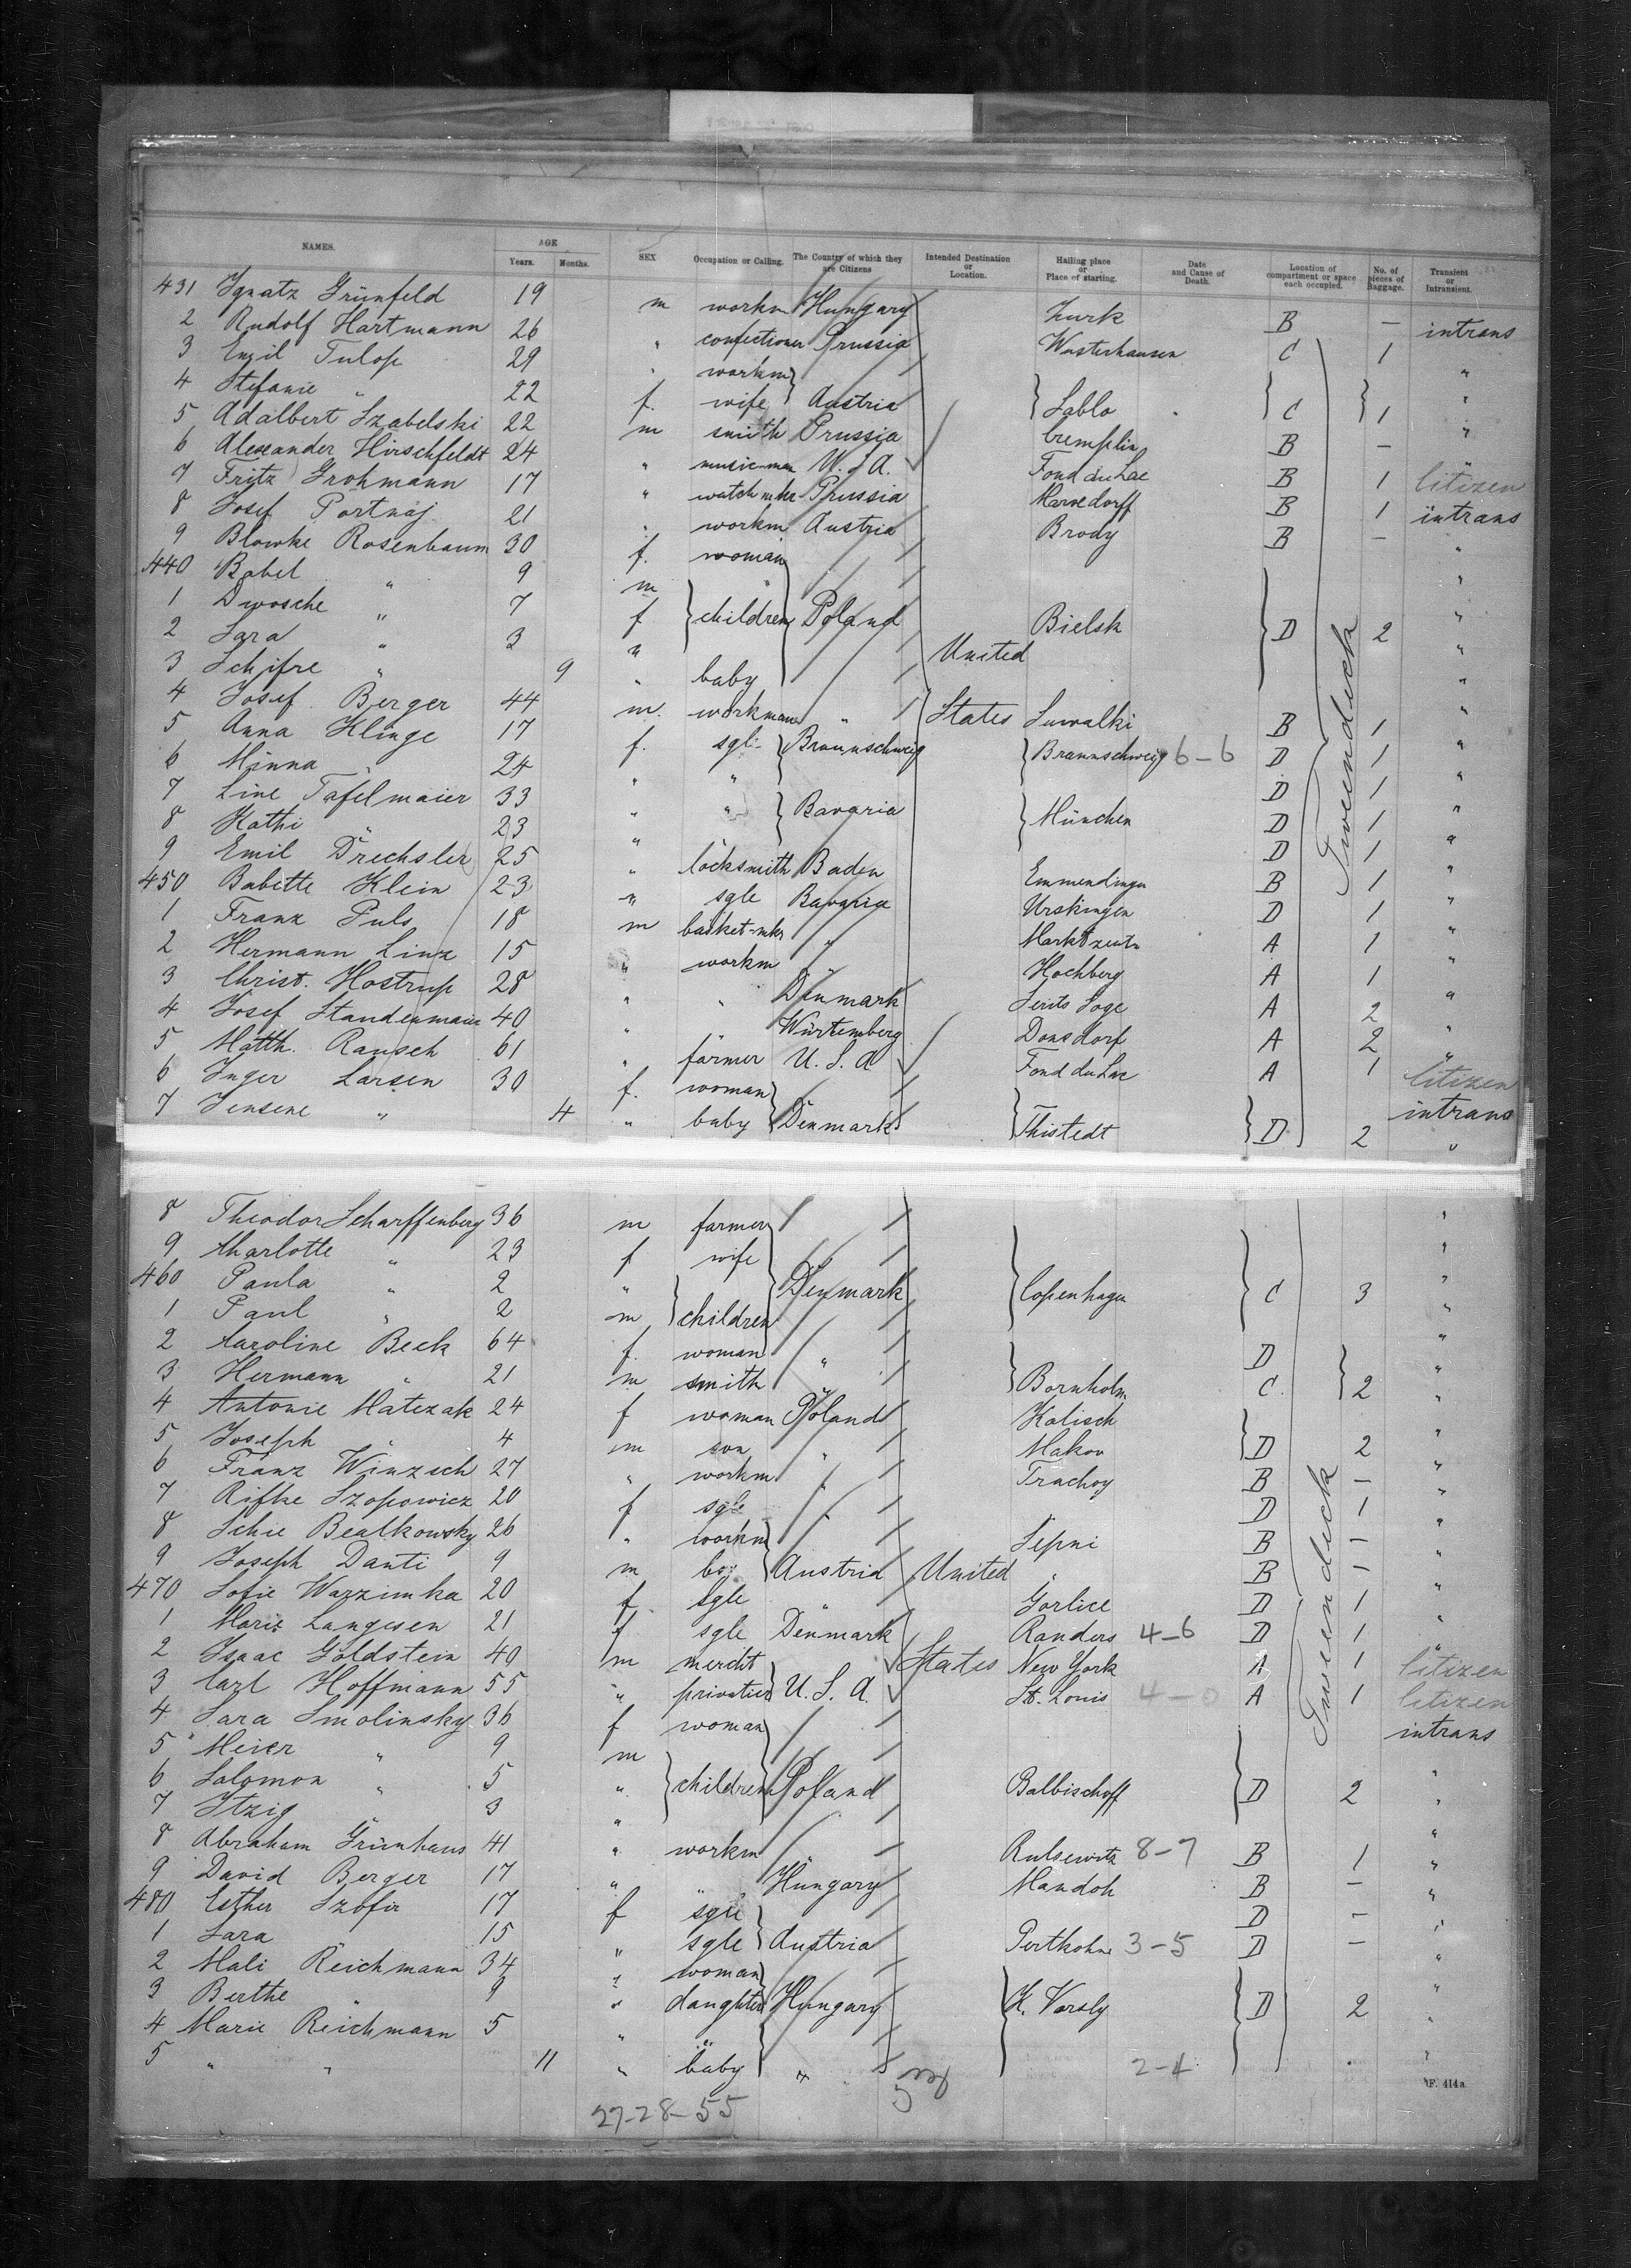 NAMES. AGE Years. Months. SEX Occupation or Calling. The Country of which they are Citizens Intended Destination or Location. Hailing place or Place of starting. Date and Cause of Death. Location of compartment or space each occupied. No. of pieces of Baggage. Transient or Intransient.
431 Ignatz Grünfeld 19 m workm Hungary Turk B — intrans
2 Rudolf Hartmann 26 " confectioner Prussia Wusterhausen C 1 "
3 Emil Fulop 29 " workm
4 Stefanie " 22 f. wife Austria Lablo C 1 "
5 Adalbert Szabelski 22 m smith Prussia Cremplin B — "
6 Alexander Hirschfeldt 24 " music-man U. S. A. Fond du Lac B 1 Citizen
7 Fritz Grohmann 17 " watch mkr Prussia B 1 intrans
8 Josef Portnaj 21 " workm Austria Brody B — "
9 Blowke Rosenbaum 30 f. woman "
440 Babel " 9 m "
1 Dwosche " 7 f children Poland Bielsk D 2 "
2 Sara " 3 " United "
3 Schifre " 9 " baby "
4 Josef Berger 44 m. workman " States Suwalki B 1 "
5 Anna Klinge 17 f. sgl. Braunschweig Braunschweig 6-6 D 1 "
6 Minna " 24 " " D 1 "
7 Line Tafelmaier 33 " " Bavaria München D 1 "
8 Kathi " 23 " D 1 "
9 Emil Drechsler 25 " locksmith Baden Emmendingen B 1 "
450 Babette Klein 23 " sgle Bavaria Urspringen D 1 "
1 Franz Puls 18 m basket-mkr " Marktzeuln A 1 "
2 Hermann Linz 15 " workm " Hochberg A 1 "
3 Christ. Hostrup 28 " " Denmark A 2 "
4 Josef Standenmaier 40 " " Würtemberg Donsdorf A 2 "
5 Matth. Rausch 61 " farmer U. S. A Fond du Lac A 1 Citizen
6 Inger Larsen 30 f. woman intrans
7 Jensene " 4 " baby Denmark Thistedt D 2 "
Tweendeck
8 Theodor Scharffenberg 36 m farmer "
9 Charlotte " 23 f wife "
460 Paula " 2 " Denmark Copenhagen C 3 "
1 Paul " 2 m children "
2 Caroline Beck 64 f. woman " D "
3 Hermann " 21 m smith " Bornholm C. 2 "
4 Antonie Matczak 24 f woman Poland Kalisch "
5 Joseph " 4 m son " Makov D 2 "
6 Franz Winzsch 27 " workm " Trachoy B — "
7 Rifke Szopowicz 20 f sgle D 1 "
8 Schie Bealkowsky 26 " workm " Sepni B — "
9 Joseph Danti 9 m boy Austria United " B — "
470 Sofie Wazzimka 20 f sgle " Gorlice D 1 "
1 Marie Langesen 21 f sgle Denmark Randers 4-6 D 1 "
2 Isaac Goldstein 40 m mercht States New York A 1 Citizen
3 Carl Hoffmann 55 " privatier U. S. A. St. Louis 4-0 A 1 Citizen
4 Sara Smolinsky 36 f woman intrans
5 Meier " 9 m "
6 Salomon " 5 " children Poland Balbischoff D 2 "
7 Itzig " 3 " "
8 Abraham Grünhaus 41 " workm " Rulsewitz 8-7 B 1 "
9 David Berger 17 " " Hungary Mandok B — "
480 Esther Szofir 17 f sgle D — "
1 Sara " 15 " sgle Austria 3-5 D — "
2 Mali Reichmann 34 " woman "
3 Berthe " 9 " daughter Hungary K. Varsly D 2 "
4 Marie Reichmann 5 " " "
5 " " 11 " baby " 2-4 "
Tweendeck
27-28-55
F. 414a